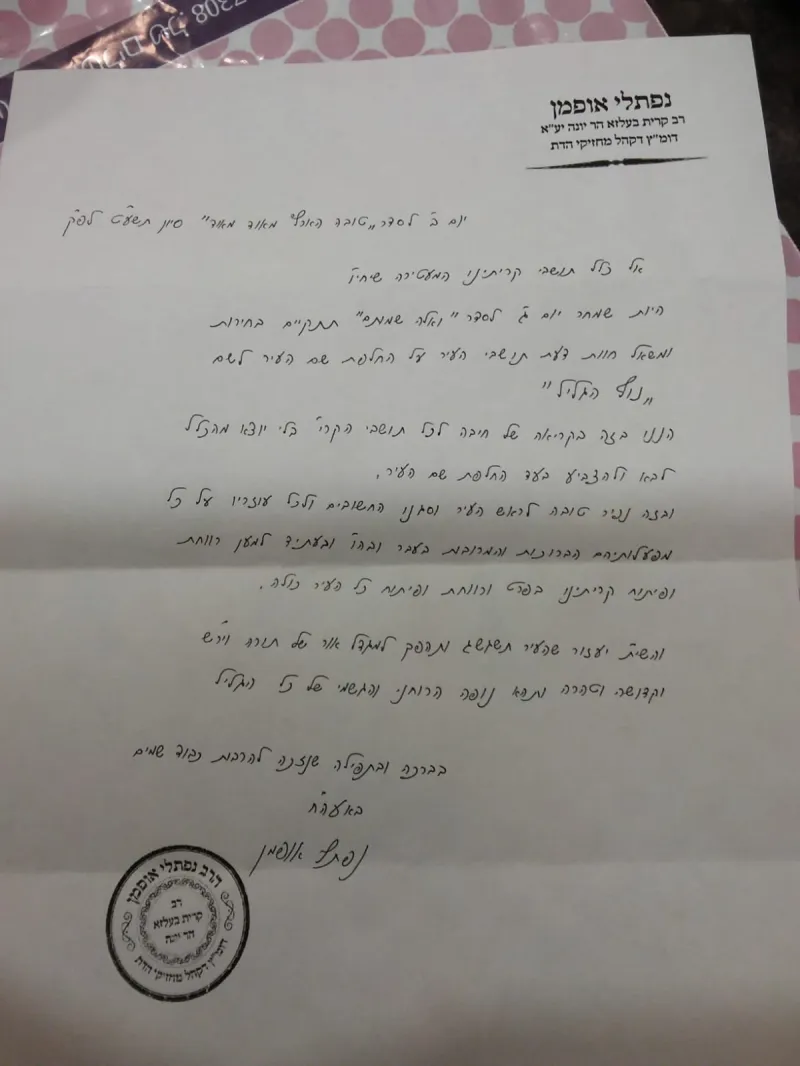 נפתלי אופמן
רב קרית בעלזא הר יונה יע״א
דומ״ץ דקהל מחזיקי הדת
יום ב׳ לסדר „טובה הארץ מאוד מאוד״ סיון תשע״ט לפ״ק
אל כלל תושבי קריתינו המעטירה שיחיו
היות שמחר יום ג׳ לסדר ״ואלה שמותם״ תתקיים בחירות
ומשאל חוות דעת תושבי העיר על החלפת שם העיר לשם
„נוף הגליל״
הנני בזה בקריאה של חיבה לכל תושבי הקרי׳ בלי יוצא מהכלל
לבא ולהצביע בעד החלפת שם העיר.
ובזה נכיר טובה לראש העיר וסגנו החשובים ולכל עוזריו על כל
מפעלותיהם הברוכות והמרובות בעבר ובהו׳ ובעתיד למען רווחת
ופיתוח קריתינו בפרט ורווחת ופיתוח כל העיר כולה.
והשי״ת יעזור שהעיר תשגשג ותהפך למגדל אור של תורה ויר״ש
וקדושה וטהרה ותהא נופה הרוחני והגשמי של כל הגליל
בברכה ובתפילה שנזכה להרבות כבוד שמים
באעה״ח
נפתלי אופמן
הרב נפתלי אופמן
רב
קרית בעלזא
הר יונה
דומ״ץ דקהל מחזיקי הדת